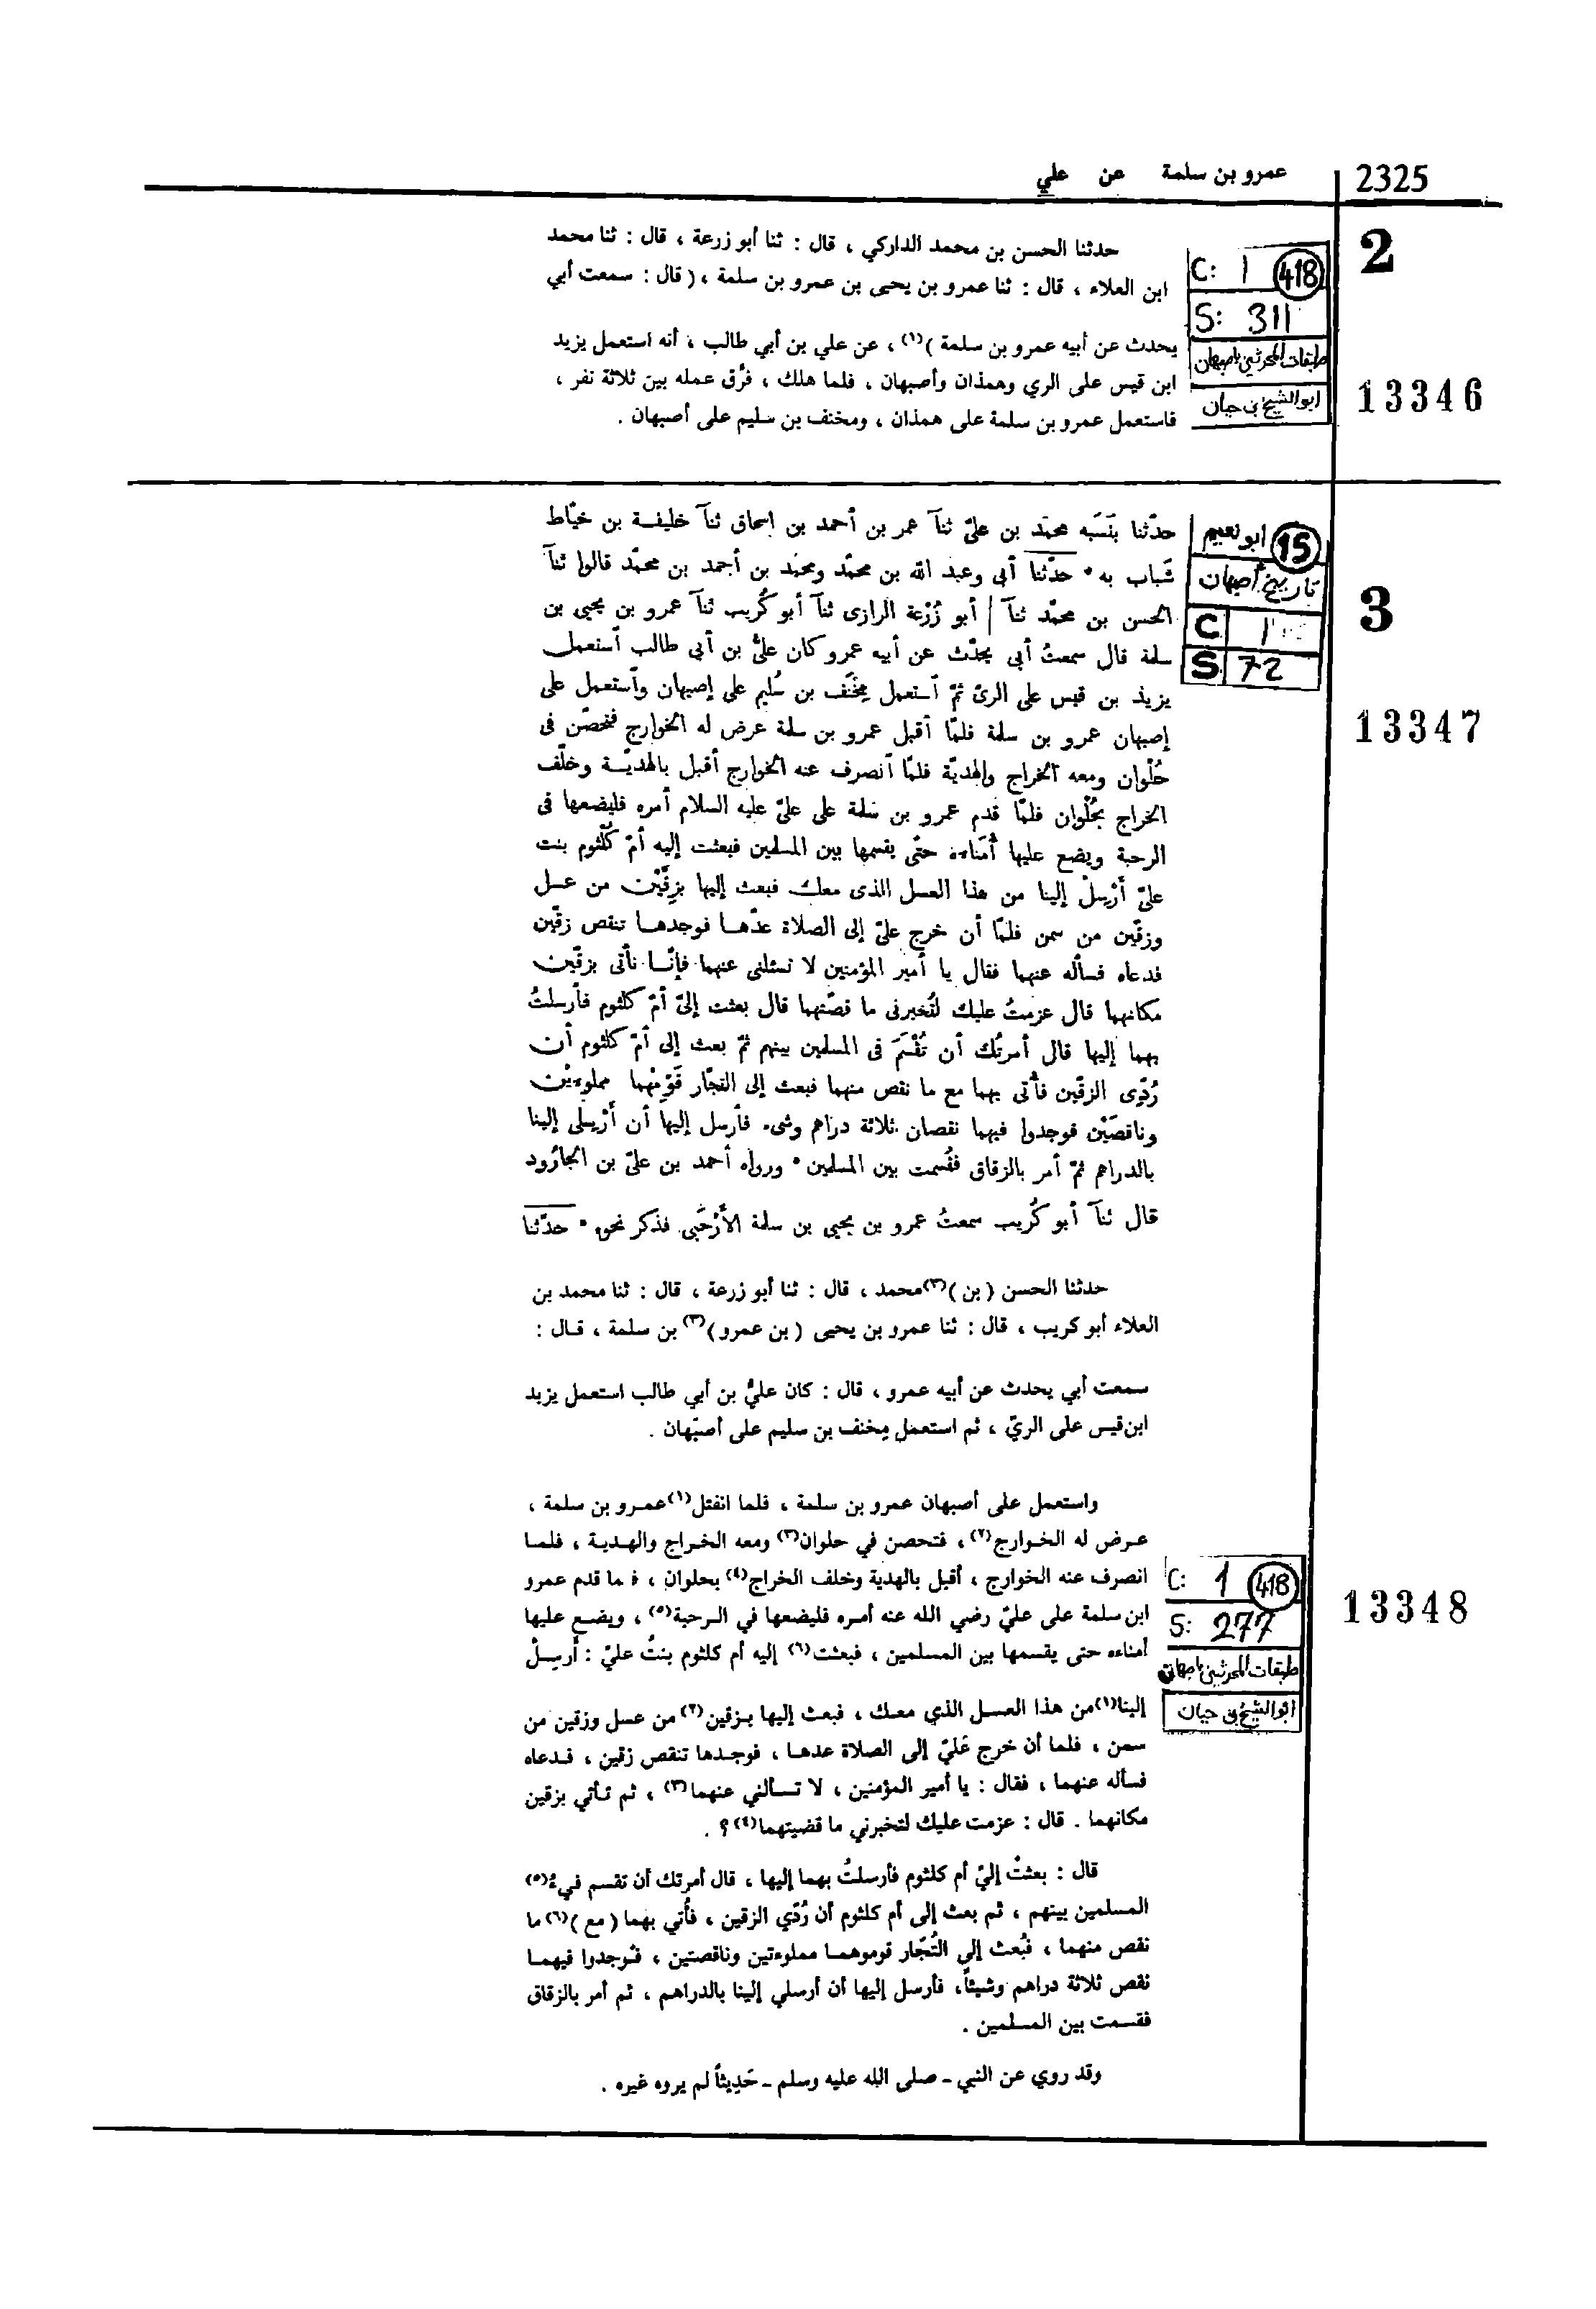 2325
عمرو بن سلمة عن علي
2
C: 1 418
S: 311
طبقات المحدثين باصبهان
ابو الشيخ بن حيان
13346
حدثنا الحسن بن محمد الداركي ، قال : ثنا أبو زرعة ، قال : ثنا محمد
ابن العلاء ، قال : ثنا عمرو بن يحيى بن عمرو بن سلمة ، ( قال : سمعت أبي
يحدث عن أبيه عمرو بن سلمة )(١) ، عن علي بن أبي طالب ، أنه استعمل يزيد
ابن قيس على الري وهمذان وأصبهان ، فلما هلك ، فرَّق عمله بين ثلاثة نفر ،
فاستعمل عمرو بن سلمة على همذان ، ومخنف بن سليم على أصبهان .
3
ابو نعيم 15
تاريخ أصبهان
C 1
S 72
13347
حدّثنا بنَسَبه محمّد بن علىّ ثنآ عمر بن أحمد بن إسحاق ثنآ خليفة بن خيّاط
شَباب به • حدّثنا أبى وعبد الله بن محمّد ومحمّد بن أحمد بن محمّد قالوا ثنآ
الحسن بن محمّد ثنآ | أبو زُرْعة الرازى ثنآ أبو كُريب ثنآ عمرو بن يحيى بن
سلمة قال سمعتُ أبى يحدّث عن أبيه عمرو كان علىُّ بن أبى طالب آستعمل
يزيد بن قيس على الرىّ ثمّ آستعمل مِخْنَف بن سُليم على إصبهان وآستعمل على
إصبهان عمرو بن سلمة فلمّا أقبل عمرو بن سلمة عرض له الخوارج فتحصّن فى
حُلْوان ومعه الخراج والهديّة فلمّا آنصرف عنه الخوارج أقبل بالهديّة وخلّف
الخراج بحُلْوان فلمّا قدم عمرو بن سلمة على علىّ عليه السلام أمره فليضعها فى
الرحبة ويضع عليها أُمَناءه حتّى يقسمها بين المسلمين فبعثت إليه أمّ كُلْثوم بنت
علىّ أَرْسِلْ إلينا من هذا العسل الذى معك فبعث إليها بزِقَّيْن من عسل
وزقّين من سمن فلمّا أن خرج علىّ إلى الصلاة عدّها فوجدها تنقص زقّين
فدعاه فسأله عنهما فقال يا أمير المؤمنين لا تسئلنى عنهما فإنّا نأتى بزقّين
مكانهما قال عزمتُ عليك لتُخبرنى ما قصّتهما قال بعثت إلىّ أمّ كلثوم فأرسلتُ
بهما إليها قال أمرتُك أن تُقْسَمَ فى المسلمين بينهم ثمّ بعث إلى أمّ كلثوم أن
رُدِّى الزقّين فأُتى بهما مع ما نقص منهما فبعث إلى التجّار قَوِّمْهما مملوءيْن
وناقصَيْن فوجدوا فيهما نقصان ثلاثة دراهم وشىء فأرسل إليها أن أَرْسِلى إلينا
بالدراهم ثمّ أمر بالزقاق فقُسمت بين المسلمين • ورواه أحمد بن علىّ بن الجارُود
قال ثنآ أبو كُريب سمعتُ عمرو بن يحيى بن سلمة الأَرْحَبى فذكر نحوه • حدّثنا
حدثنا الحسن ( بن )(٣) محمد ، قال : ثنا أبو زرعة ، قال : ثنا محمد بن
العلاء أبو كريب ، قال : ثنا عمرو بن يحيى ( بن عمرو )(٣) بن سلمة ، قال :
سمعت أبي يحدث عن أبيه عمرو ، قال : كان عليُّ بن أبي طالب استعمل يزيد
ابن قيس على الريّ ، ثم استعمل مِخنف بن سليم على أصبهان .
واستعمل على أصبهان عمرو بن سلمة ، فلما انفتل(١) عمرو بن سلمة ،
عرض له الخوارج(٢) ، فتحصن في حلوان(٣) ومعه الخراج والهدية ، فلما
انصرف عنه الخوارج ، أقبل بالهدية وخلف الخراج(٤) بحلوان ، فما قدم عمرو
ابن سلمة على عليّ رضي الله عنه أمره فليضعها في الرحبة(٥) ، ويضع عليها
أمناءه حتى يقسمها بين المسلمين ، فبعثت(٦) إليه أم كلثوم بنتُ عليّ : أرسِلْ
C: 1 418
S: 277
طبقات المحدثين باصبهان
ابو الشيخ بن حيان
13348
إلينا(١) من هذا العسل الذي معك ، فبعث إليها بزقين(٢) من عسل وزقين من
سمن ، فلما أن خرج عَليّ إلى الصلاة عدها ، فوجدها تنقص زقين ، فدعاه
فسأله عنهما ، فقال : يا أمير المؤمنين ، لا تسألني عنهما(٣) ، ثم تأتي بزقين
مكانهما . قال : عزمت عليك لتخبرني ما قضيتهما(٤) ؟ .
قال : بعثتْ إليّ أم كلثوم فأرسلتُ بهما إليها ، قال أمرتك أن تقسم فيءُ(٥)
المسلمين بينهم ، ثم بعث إلى أم كلثوم أن رُدّي الزقين ، فأُتي بهما ( مع )(٦) ما
نقص منهما ، فبُعث إلى التُجّار قوموهما مملوءتين وناقصتين ، فوجدوا فيهما
نقص ثلاثة دراهم وشيئاً، فأرسل إليها أن أرسلي إلينا بالدراهم ، ثم أمر بالزقاق
فقسمت بين المسلمين .
وقد روي عن النبي - صلى الله عليه وسلم - حَدِيثاً لم يروه غيره .